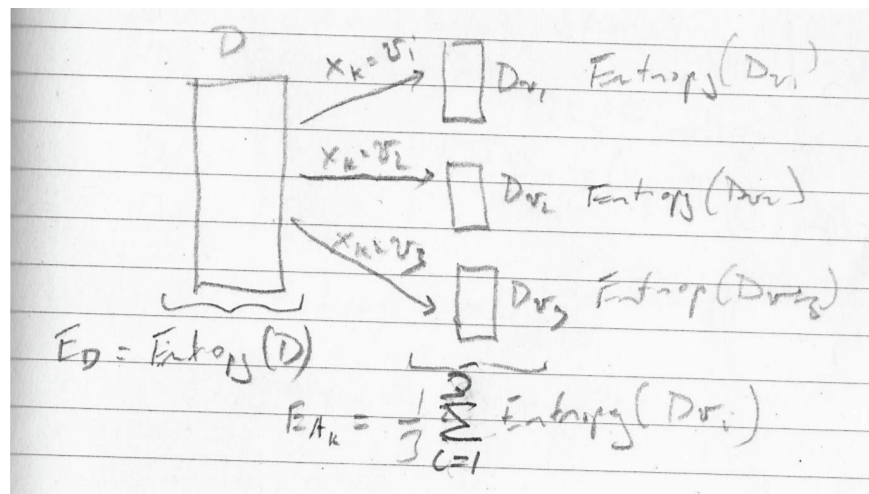 D
x_k = v_1 D_{v_1} Entropy(D_{v_1})
x_k = v_2 D_{v_2} Entropy(D_{v_2})
x_k = v_3 D_{v_3} Entrop(D_{v_3})
E_D = Entropy(D)
E_{A_k} = \frac{1}{3} \sum_{i=1}^{3} Entropy(D_{v_i})